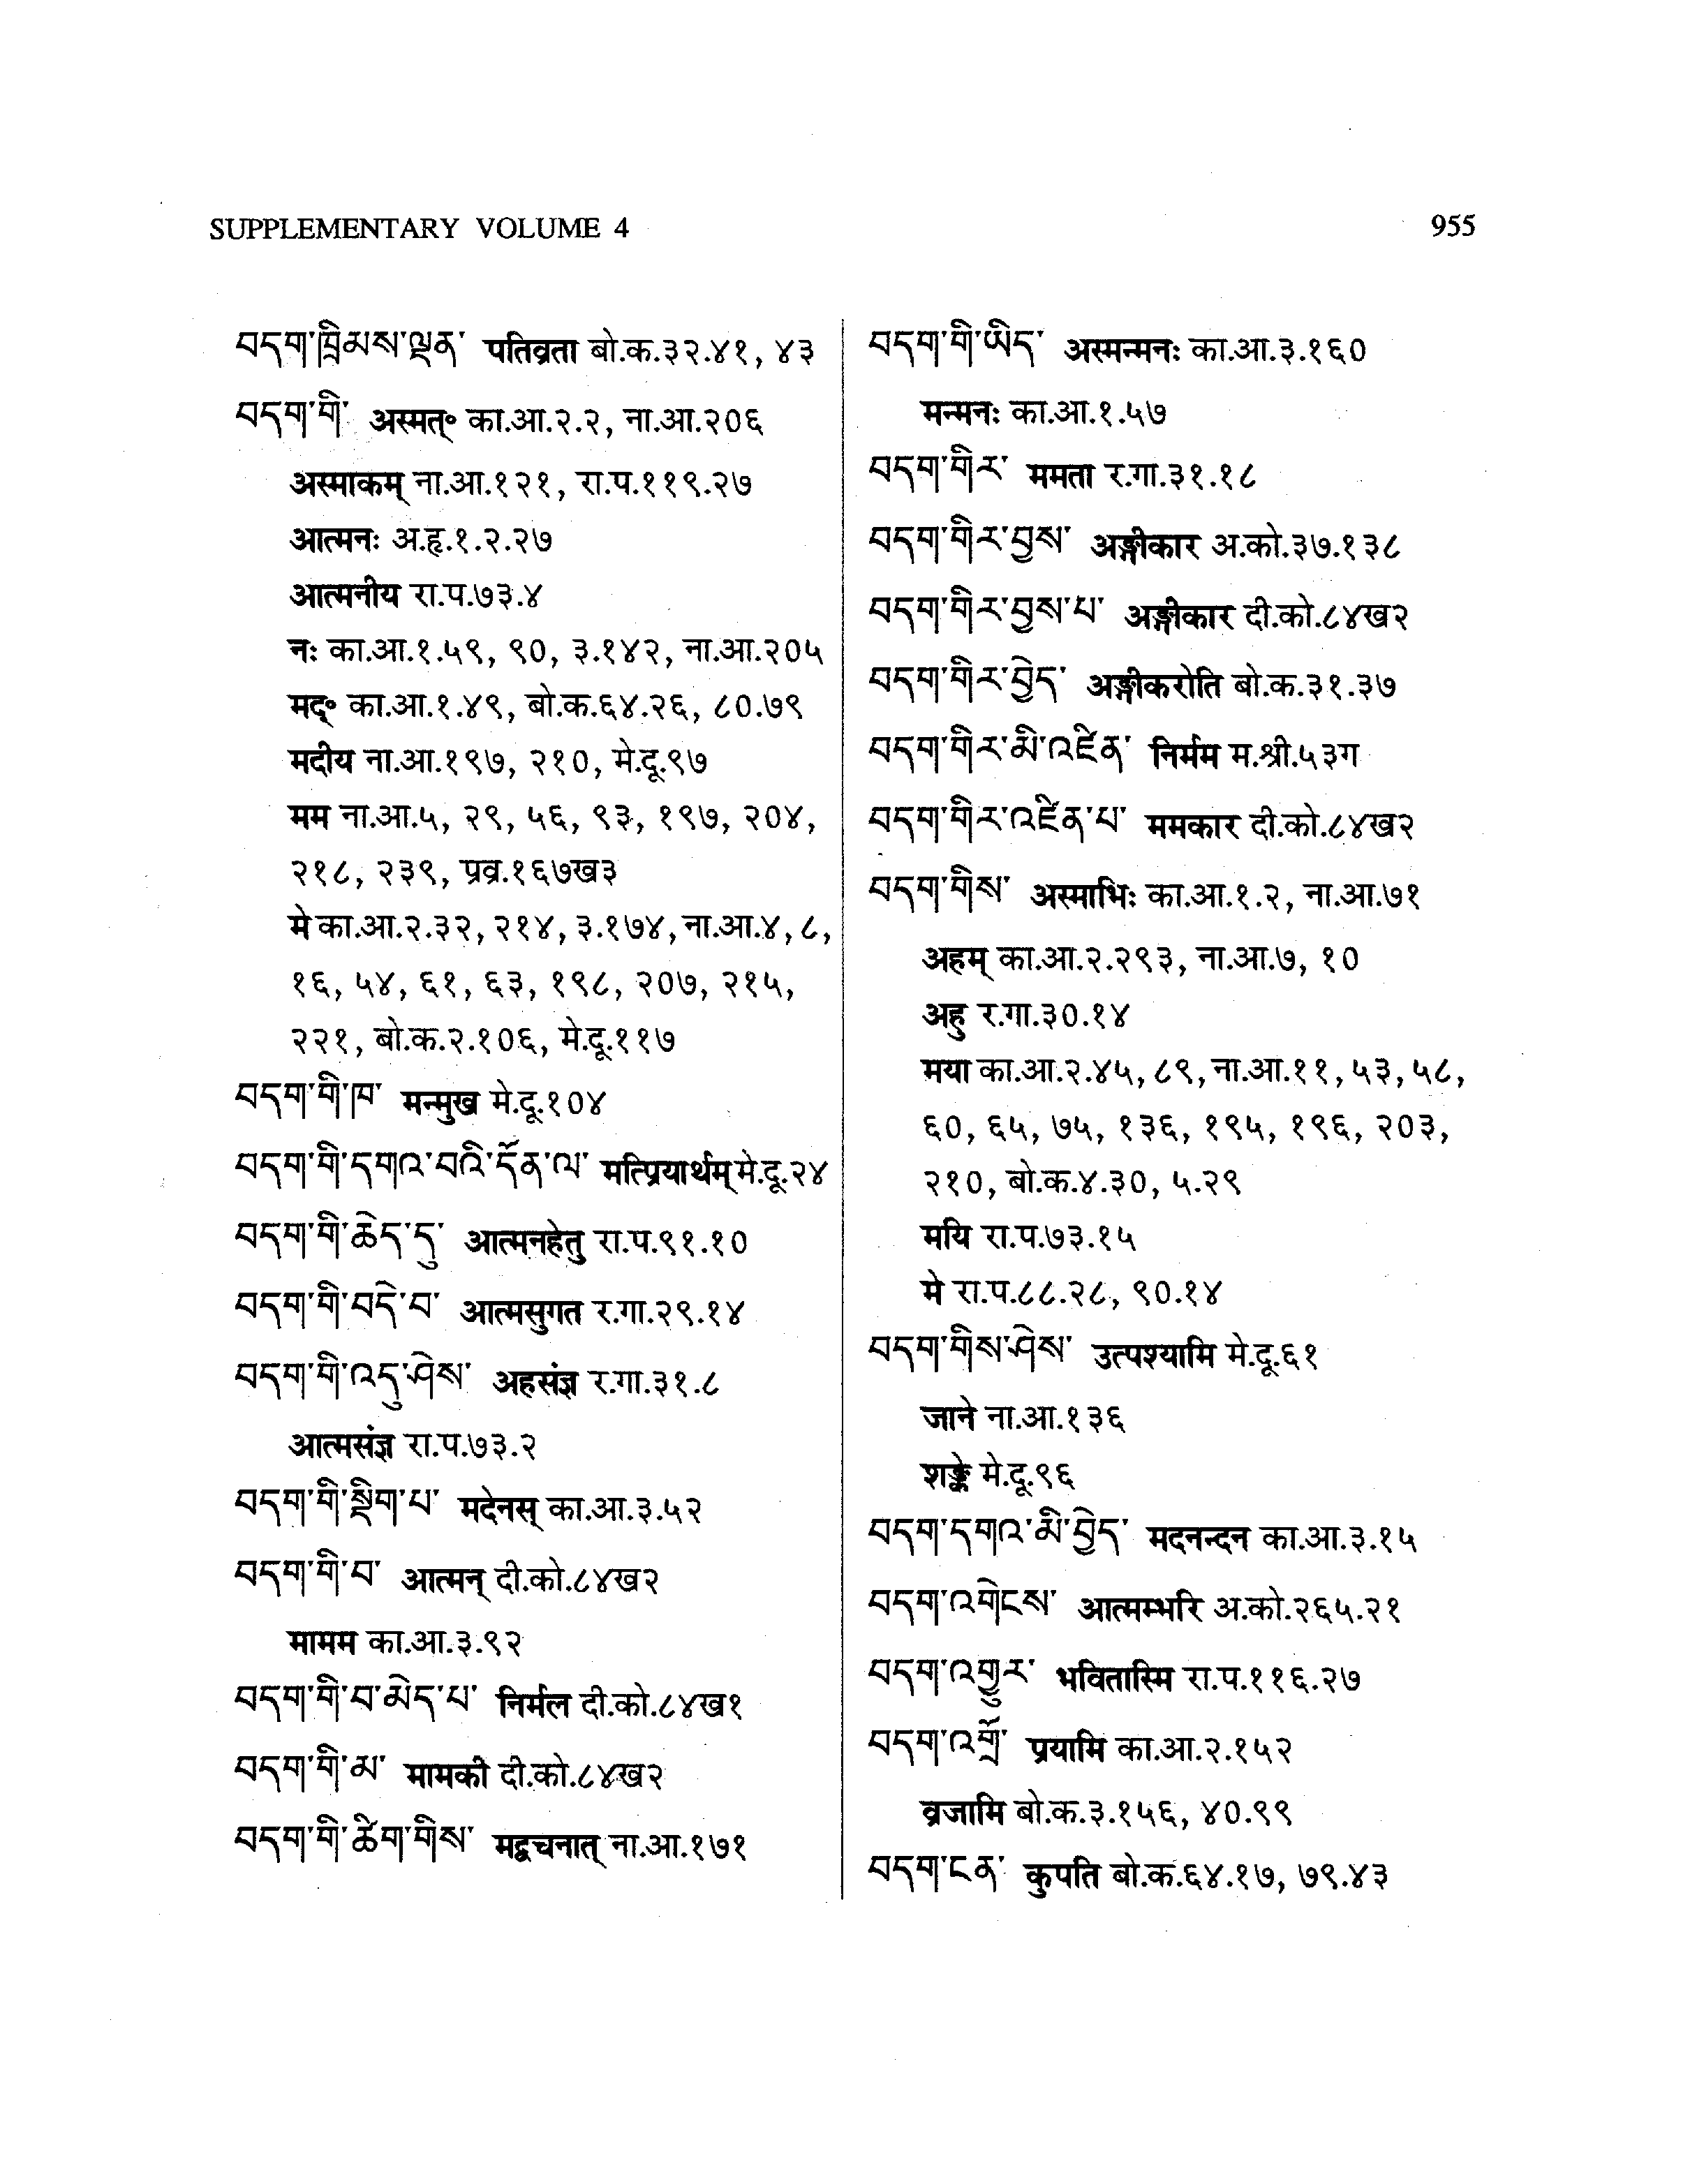 SUPPLEMENTARY VOLUME 4
955
བདག་ཁྲིམས་ལྡན་ पतिव्रता बो.क.३२.४१, ४३
བདག་གི་ अस्मत्॰ का.आ.२.२, ना.आ.२०६
अस्माकम् ना.आ.१२१, रा.प.११९.२७
आत्मनः अ.हृ.१.२.२७
आत्मनीय रा.प.७३.४
नः का.आ.१.५९, ९०, ३.१४२, ना.आ.२०५
मद्॰ का.आ.१.४९, बो.क.६४.२६, ८०.७९
मदीय ना.आ.१९७, २१०, मे.दू.९७
मम ना.आ.५, २९, ५६, ९३, १९७, २०४,
२१८, २३९, प्रव्र.१६७ख३
मे का.आ.२.३२, २१४, ३.१७४, ना.आ.४, ८,
१६, ५४, ६१, ६३, १९८, २०७, २१५,
२२१, बो.क.२.१०६, मे.दू.११७
བདག་གི་ཁ་ मन्मुख मे.दू.१०४
བདག་གི་དགའ་བའི་དོན་ལ་ मत्प्रियार्थम् मे.दू.२४
བདག་གི་ཆེད་དུ་ आत्मनहेतु रा.प.९१.१०
བདག་གི་བདེ་བ་ आत्मसुगत र.गा.२९.१४
བདག་གི་འདུ་ཤེས་ अहसंज्ञ र.गा.३१.८
आत्मसंज्ञ रा.प.७३.२
བདག་གི་སྡིག་པ་ मदेनस् का.आ.३.५२
བདག་གི་བ་ आत्मन् दी.को.८४ख२
मामम का.आ.३.९२
བདག་གི་བ་མེད་པ་ निर्मल दी.को.८४ख१
བདག་གི་མ་ मामकी दी.को.८४ख२
བདག་གི་ཚིག་གིས་ मद्वचनात् ना.आ.१७१
བདག་གི་ཡིད་ अस्मन्मनः का.आ.३.१६०
मन्मनः का.आ.१.५७
བདག་གིར་ ममता र.गा.३१.१८
བདག་གིར་བྱས་ अङ्गीकार अ.को.३७.१३८
བདག་གིར་བྱས་པ་ अङ्गीकार दी.को.८४ख२
བདག་གིར་བྱེད་ अङ्गीकरोति बो.क.३१.३७
བདག་གིར་མི་འཛིན་ निर्मम म.श्री.५३ग
བདག་གིར་འཛིན་པ་ ममकार दी.को.८४ख२
བདག་གིས་ अस्माभिः का.आ.१.२, ना.आ.७१
अहम् का.आ.२.२९३, ना.आ.७, १०
अहु र.गा.३०.१४
मया का.आ.२.४५, ८९, ना.आ.११, ५३, ५८,
६०, ६५, ७५, १३६, १९५, १९६, २०३,
२१०, बो.क.४.३०, ५.२९
मयि रा.प.७३.१५
मे रा.प.८८.२८, ९०.१४
བདག་གིས་ཤེས་ उत्पश्यामि मे.दू.६१
जाने ना.आ.१३६
शङ्के मे.दू.९६
བདག་དགའ་མི་བྱེད་ मदनन्दन का.आ.३.१५
བདག་འགེངས་ आत्मम्भरि अ.को.२६५.२१
བདག་འགྱུར་ भवितास्मि रा.प.११६.२७
བདག་འགྲོ་ प्रयामि का.आ.२.१५२
व्रजामि बो.क.३.१५६, ४०.९९
བདག་ངན་ कुपति बो.क.६४.१७, ७९.४३